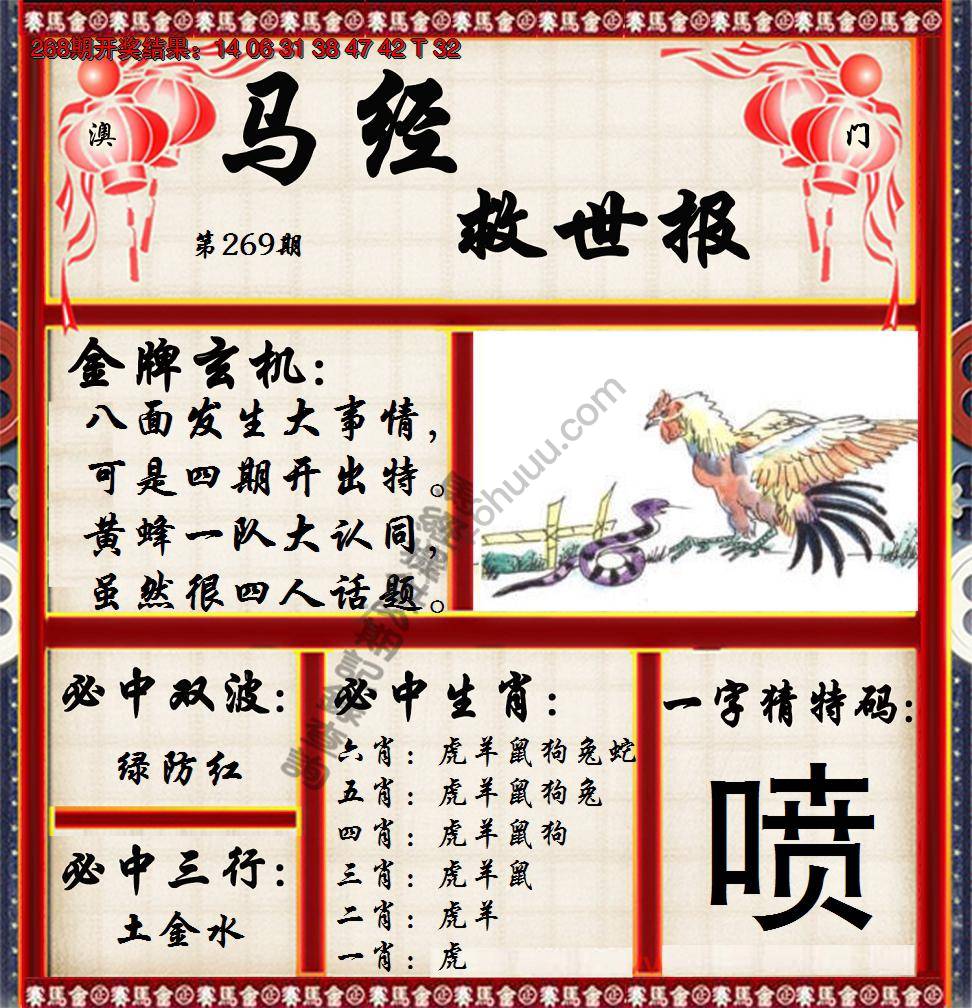 268期开奖结果：14 06 31 38 47 42 T 32
澳 门
马经
救世报
第269期
金牌玄机：
八面发生大事情，
可是四期开出特。
黄蜂一队大认同，
虽然很四人话题。
必中双波：
绿防红
必中三行：
土金水
必中生肖：
六肖：虎羊鼠狗兔蛇
五肖：虎羊鼠狗兔
四肖：虎羊鼠狗
三肖：虎羊鼠
二肖：虎羊
一肖：虎
一字猜特码：
喷